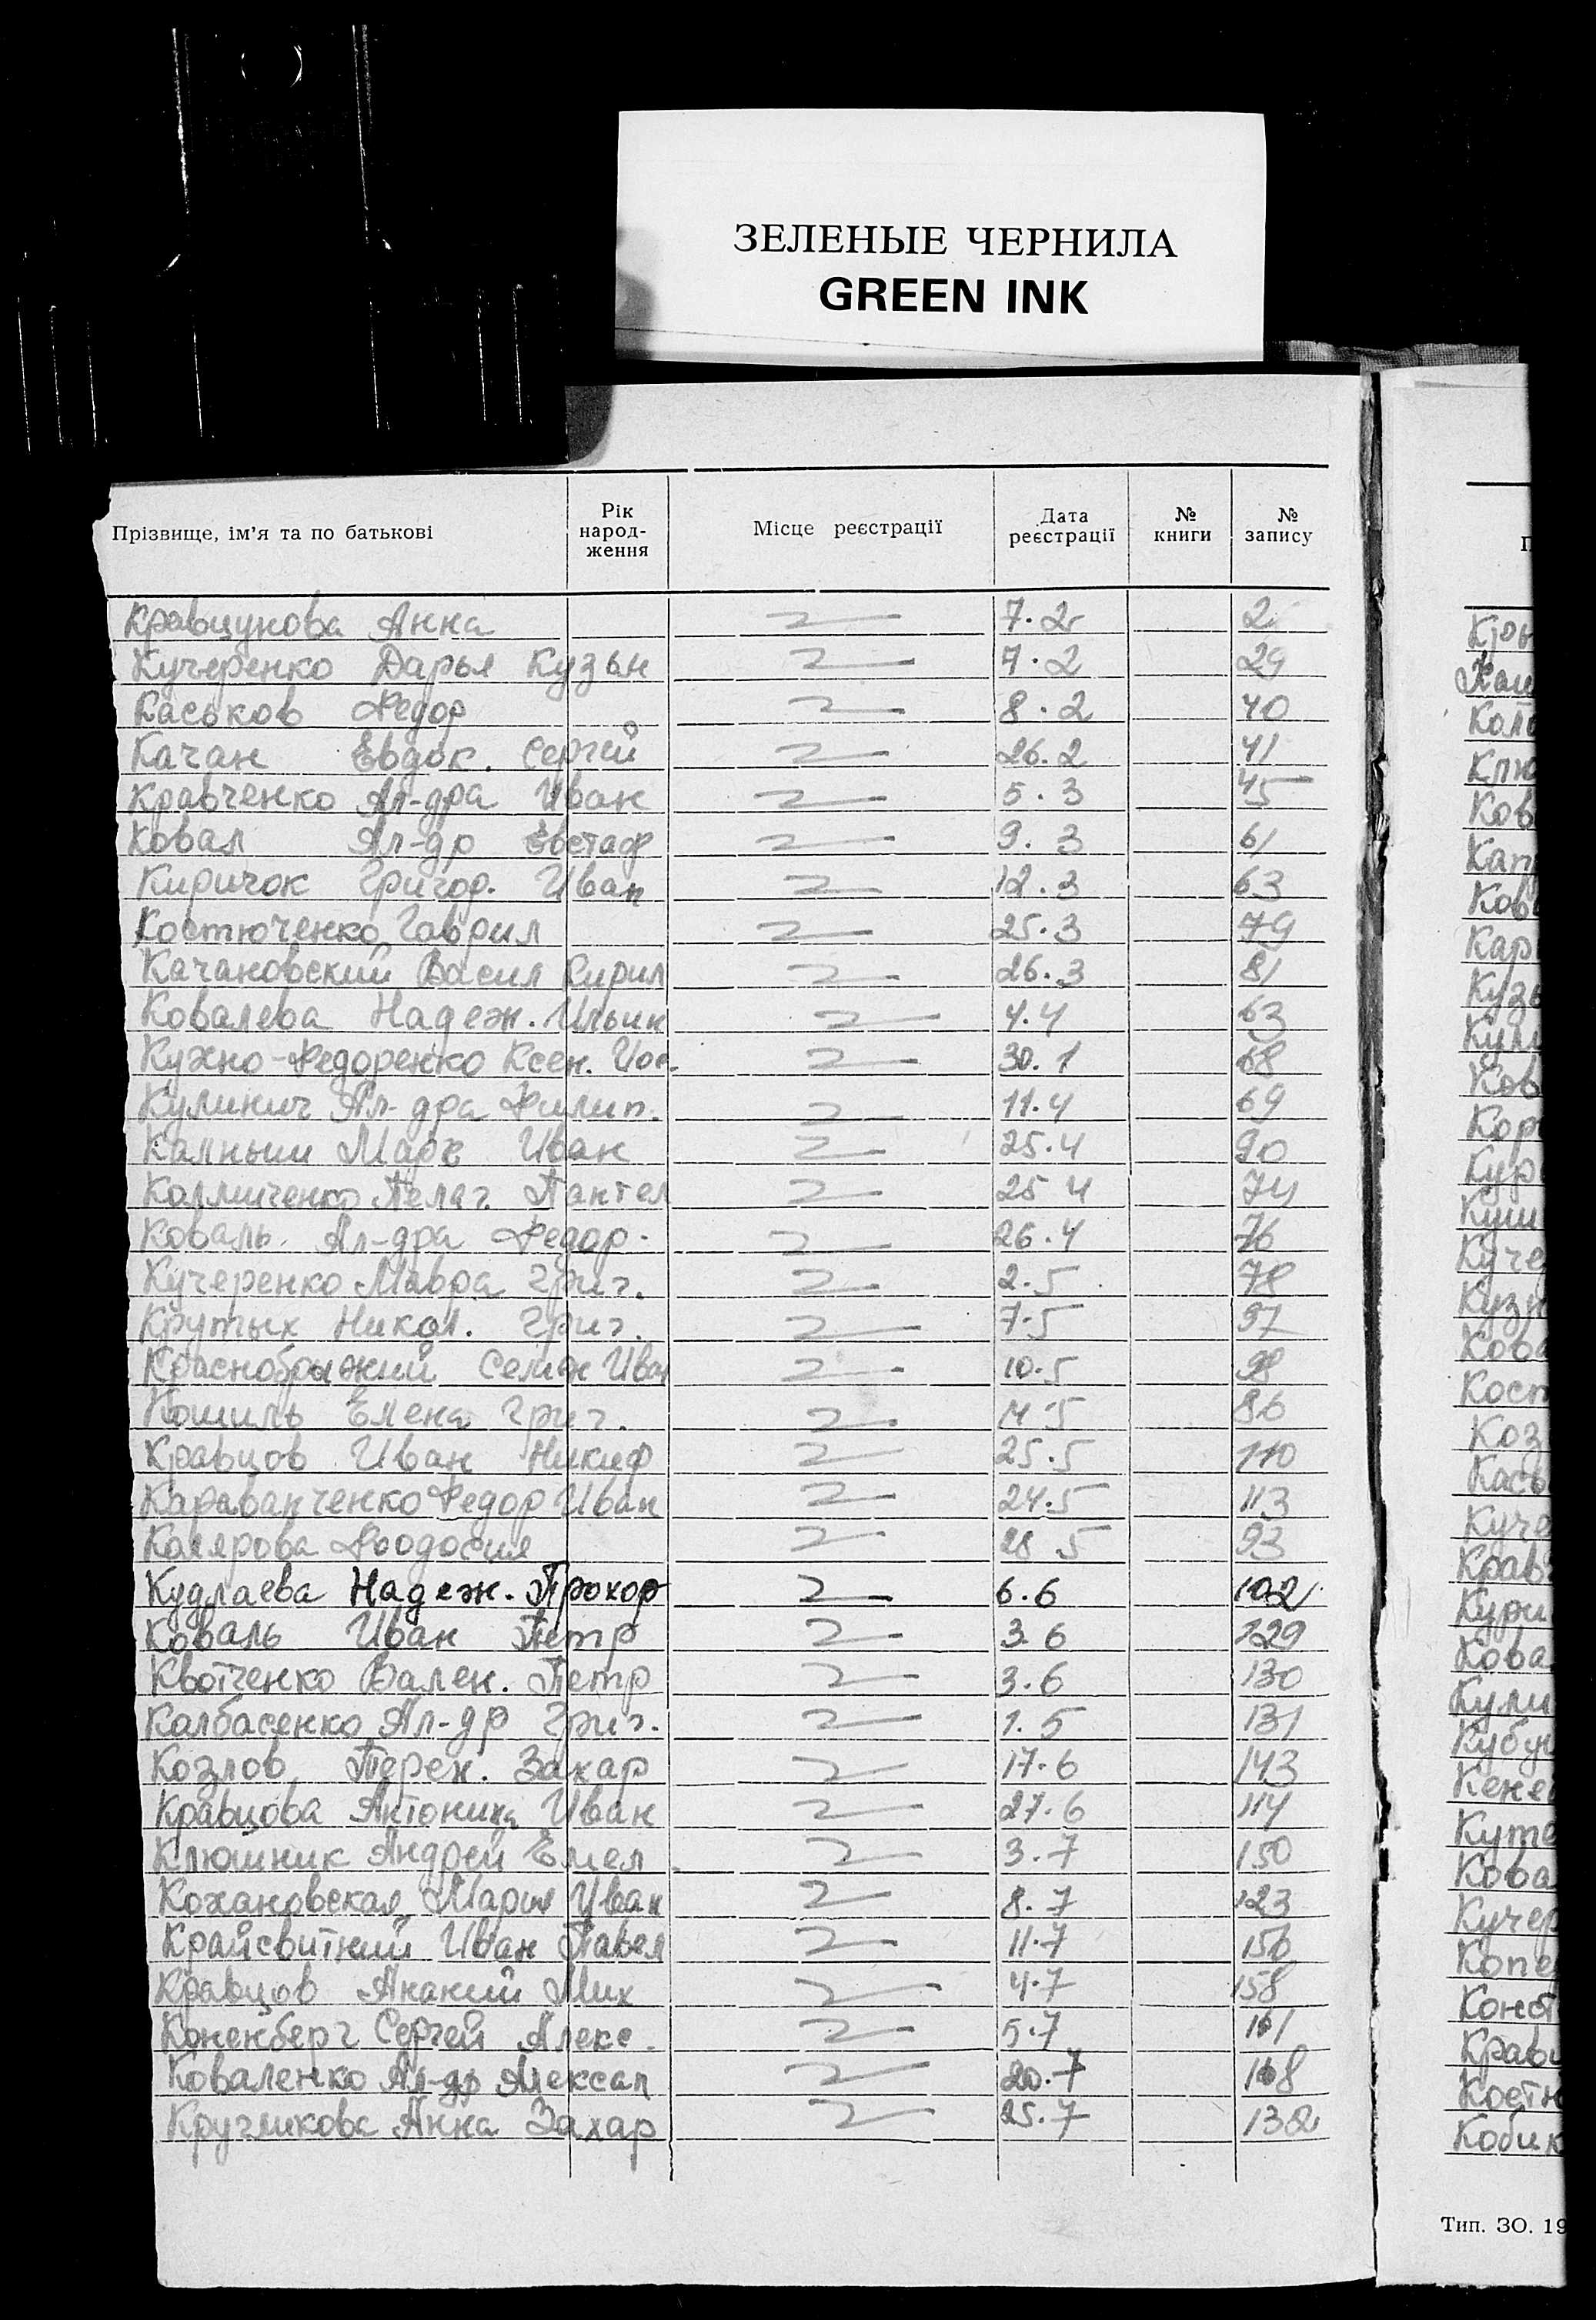 ЗЕЛЕНЫЕ ЧЕРНИЛА
GREEN INK
Прізвище, ім'я та по батькові Рік народ- ження Місце реєстрації Дата реєстрації № книги № запису
Кравцунова Анна 7.2 2
Кучеренко Дарья Кузьм 7.2 29
Каськов Федор 8.2 40
Качан Евдок. Сергей 26.2 41
Кравченко Ал-дра Иван 5.3 45
Ковал Ал-др Евстаф 9.3 61
Киричок Григор. Иван 12.3 63
Костюченко Гаврил 25.3 79
Качановский Васил Кирил 26.3 81
Ковалева Надеж. Ильин 4.4 63
Кухно-Федоренко Ксен. Иос. 30.1 68
Кулинич Ал-дра Филип. 11.4 69
Камныш Марк Иван 25.4 90
Пелаг. Пантел 25 4 74
Коваль Ал-дра Федор. 26.4 76
Кучеренко Мавра Григ. 2.5 78
Крутых Никол. Григ. 7.5 97
Краснобрыжий Семен Иван 10.5 98
Кошиль Елена Григ. 14.5 86
Кравцов Иван Никиф 25.5 110
Караванченко Федор Иван 24.5 113
Каларова Феодосия 28 5 93
Кудлаева Надеж. Прохор 6.6 102
Коваль Иван Петр 3.6 129
Квотченко Вален. Петр 3.6 130
Калбасенко Ал-др Григ. 1.5 131
Козлов Терен. Захар 17.6 143
Кравцова Антонина Иван 27.6 114
Клюшник Андрей Емел 3.7 150
Кохановская Мария Иван 8.7 123
Крайсвитний Иван Павел 11.7 156
Кравцов Ананий Мих 4.7 158
Коненберг Сергей Алекс. 5.7 161
Коваленко Ал-др Алексан 20.7 168
Кругликова Анна Захар 25.7 132
Кры
Каш
Коло
Клю
Ков
Кап
Ков
Кар
Кузь
Кули
Ков
Кор
Кур
Куш
Куче
Кузн
Кова
Кост
Коз
Кась
Куче
Крав
Кури
Кова
Кули
Кубу
Кене
Куте
Кова
Кучер
Копе
Конст
Крав
Костю
Кобик
Тип. ЗО. 19